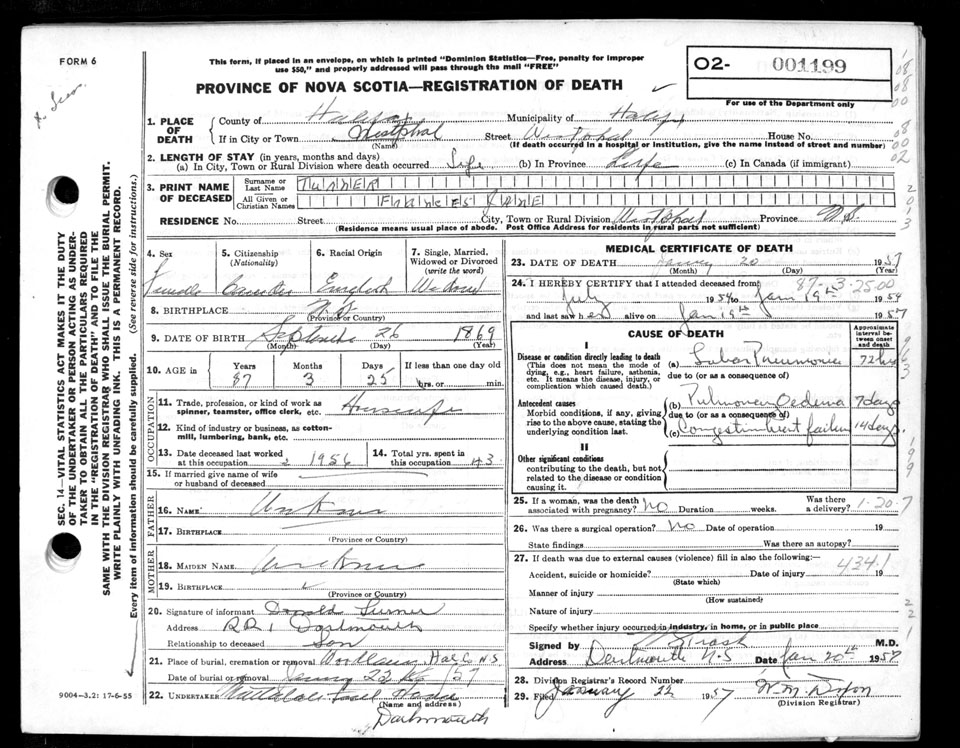 FORM 6
This form, if placed in an envelope, on which is printed "Dominion Statistics—Free, penalty for improper
use $50," and properly addressed will pass through the mail "FREE"
02- 001199
For use of the Department only
PROVINCE OF NOVA SCOTIA—REGISTRATION OF DEATH
1. PLACE OF DEATH
County of Halifax Municipality of Halifax
If in City or Town Westphal Street Westphal House No.
(Name) (If death occurred in a hospital or institution, give the name instead of street and number)
2. LENGTH OF STAY (in years, months and days)
(a) In City, Town or Rural Division where death occurred Life (b) In Province Life (c) In Canada (if immigrant)
3. PRINT NAME OF DECEASED
Surname or Last Name TURNER
All Given or Christian Names FRANCES JANE
RESIDENCE No. Street City, Town or Rural Division Westphal Province N.S.
(Residence means usual place of abode. Post Office Address for residents in rural parts not sufficient)
4. Sex
Female
5. Citizenship (Nationality)
Canadian
6. Racial Origin
English
7. Single, Married, Widowed or Divorced (write the word)
Widow
8. BIRTHPLACE N.S.
(Province or Country)
9. DATE OF BIRTH September 26 1869
(Month) (Day) (Year)
10. AGE in Years Months Days If less than one day old
87 3 25 hrs. or min.
OCCUPATION
11. Trade, profession, or kind of work as spinner, teamster, office clerk, etc. Housewife
12. Kind of industry or business, as cotton-mill, lumbering, bank, etc.
13. Date deceased last worked at this occupation 1956
14. Total yrs. spent in this occupation 43
15. If married give name of wife or husband of deceased
FATHER
16. NAME Unknown
17. BIRTHPLACE
(Province or Country)
MOTHER
18. MAIDEN NAME Unknown
19. BIRTHPLACE
(Province or Country)
20. Signature of informant Donald Turner
Address R.R. 1 Dartmouth
Relationship to deceased Son
21. Place of burial, cremation or removal Woodlawn Hal Co NS
Date of burial or removal 22 57
22. UNDERTAKER
(Name and address)
Dartmouth
MEDICAL CERTIFICATE OF DEATH
23. DATE OF DEATH January 20 1957
(Month) (Day) (Year)
24. I HEREBY CERTIFY that I attended deceased from 87-3-25.00
July 1954 to Jan 19th 1957
and last saw her alive on Jan 19th 1957
CAUSE OF DEATH
Approximate interval between onset and death
I
Disease or condition directly leading to death
(This does not mean the mode of dying, e.g., heart failure, asthenia, etc. It means the disease, injury, or complication which caused death.)
(a) Lobar Pneumonia 72 hrs
due to (or as a consequence of)
Antecedent causes
Morbid conditions, if any, giving rise to the above cause, stating the underlying condition last.
(b) Pulmonary Oedema 7 days
due to (or as a consequence of)
(c) Congestive Heart failure 14 days
II
Other significant conditions
contributing to the death, but not related to the disease or condition causing it.
25. If a woman, was the death associated with pregnancy? No Duration weeks. Was there a delivery? 1-20-7
26. Was there a surgical operation? No Date of operation 19
State findings Was there an autopsy?
27. If death was due to external causes (violence) fill in also the following:—
Accident, suicide or homicide? Date of injury 19
434.1
(State which)
Manner of injury
(How sustained)
Nature of injury
Specify whether injury occurred in industry, in home, or in public place
Signed by Trask M.D.
Address Dartmouth N-S Date Jan 20th 1957
28. Division Registrar's Record Number
29. Filed January 22 1957 W. M. Dixon
(Division Registrar)
SEC. 14—VITAL STATISTICS ACT MAKES IT THE DUTY
OF THE UNDERTAKER OR PERSON ACTING AS UNDER-
TAKER TO OBTAIN ALL THE PARTICULARS REQUIRED
IN THE "REGISTRATION OF DEATH" AND TO FILE THE
SAME WITH THE DIVISION REGISTRAR WHO SHALL ISSUE THE BURIAL PERMIT.
WRITE PLAINLY WITH UNFADING INK. THIS IS A PERMANENT RECORD.
Every item of information should be carefully supplied. (See reverse side for instructions.)
9004-3.2: 17-6-55